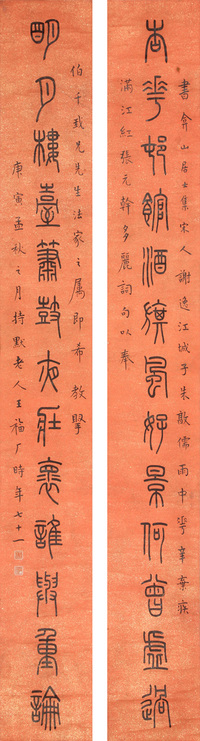 書弇山居士集宋人謝逸江城子朱敦儒雨中華辛棄疾
杏華邨館酒旗風好景何曾虛過
滿江紅張元幹多麗詞句以奉
伯千我兄先生法家之属即希教
明月樓臺簫鼓夜壯懷誰與重論
庚寅孟秋之月持默老人王福厂時年七十一